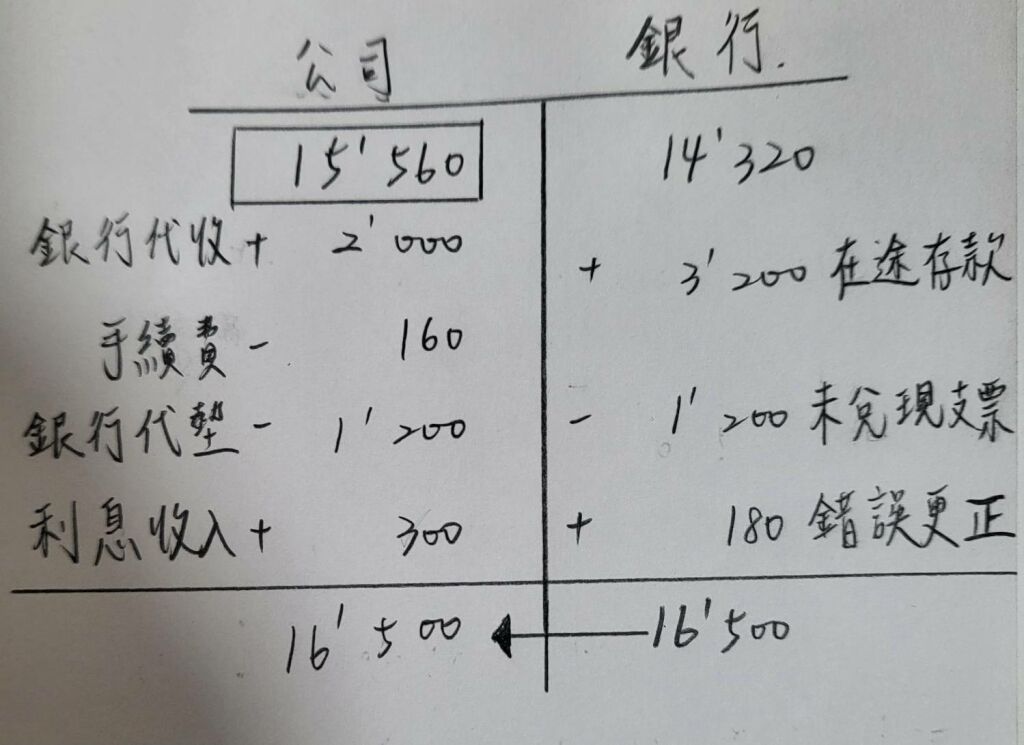 公司 銀行.
15'560 14'320
銀行代收 + 2'000 + 3'200 在途存款
手續費 - 160
銀行代墊 - 1'200 - 1'200 未兌現支票
利息收入 + 300 + 180 錯誤更正
16'500 16'500